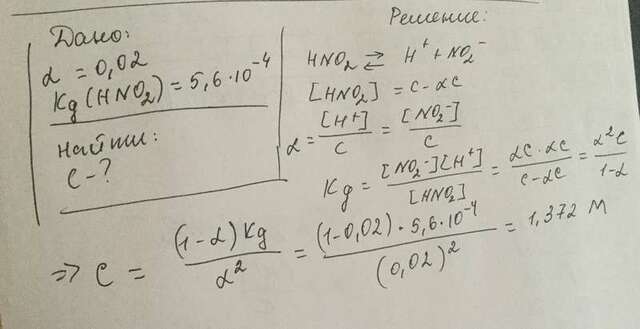 Дано:
α = 0,02
Kg (HNO₂) = 5,6·10⁻⁴
Найти:
c - ?
Решение:
HNO₂ ⇄ H⁺ + NO₂⁻
[HNO₂] = c - αc
α = [H⁺]/c = [NO₂⁻]/c
Kg = [NO₂⁻][H⁺]/[HNO₂] = αc · αc/(c - αc) = α²c/(1-α)
⇒ c = (1-α)Kg/α² = (1-0,02)·5,6·10⁻⁴/(0,02)² = 1,372 М